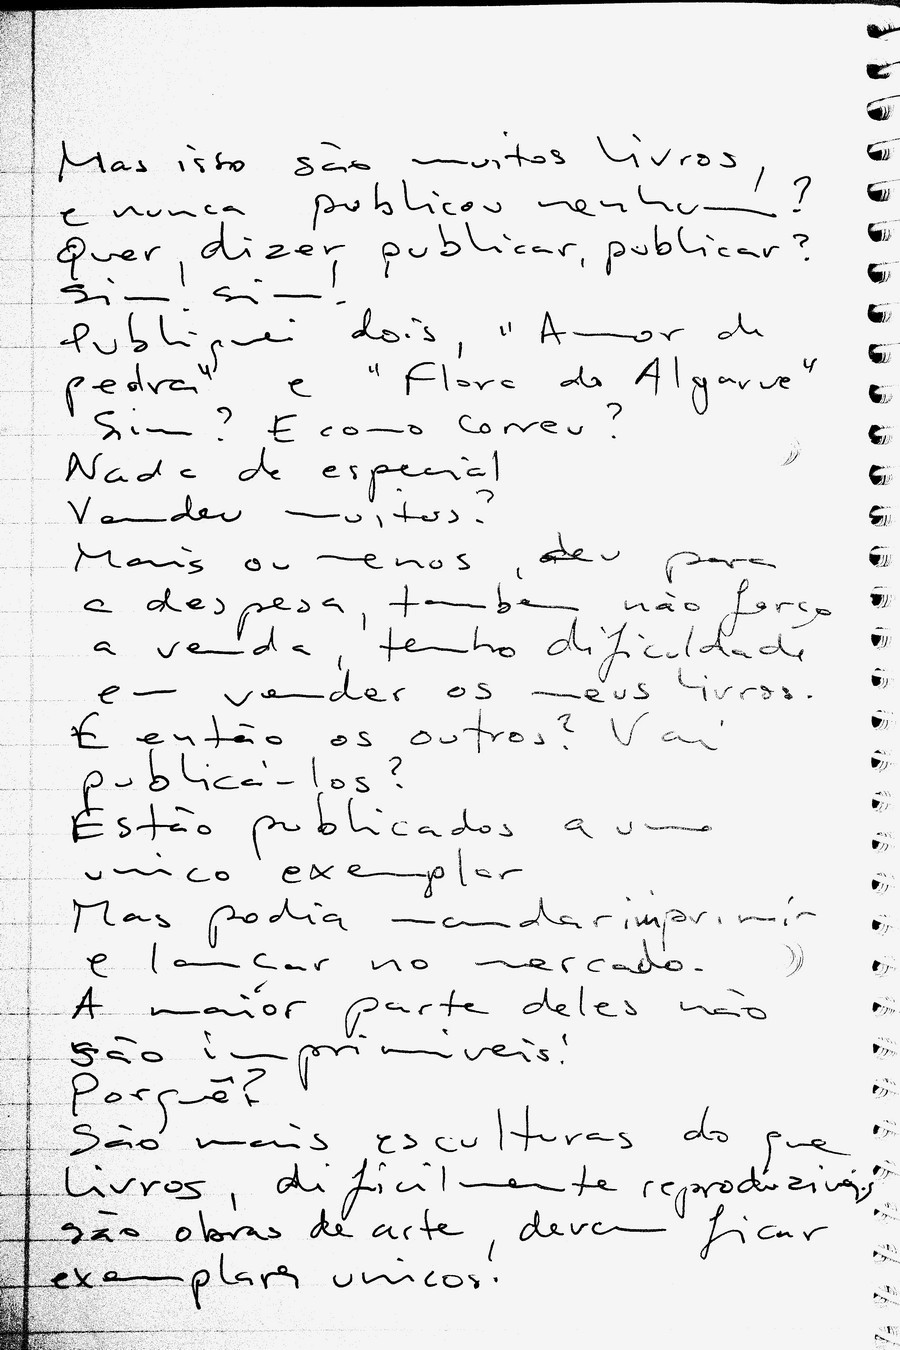 Mas isso são muitos livros,
e nunca publicou nenhum!?
Quer dizer, publicar, publicar?
Sim! Sim!
Publiquei dois, "Amor de
pedra" e "Flora do Algarve"
Sim? E como correu?
Nada de especial
Vendeu muitos?
Mais ou menos, deu para
a despesa, tambem não forço
a venda, tenho dificuldade
em vender os meus livros.
E então os outros? Vai
publicá-los?
Estão publicados a um
unico exemplar
Mas podia mandar imprimir
e lançar no mercado.
A maior parte deles não
são imprimiveis!
Porquê?
São mais esculturas do que
livros, dificilmente reproduziveis
são obras de arte, devem ficar
exemplares unicos!